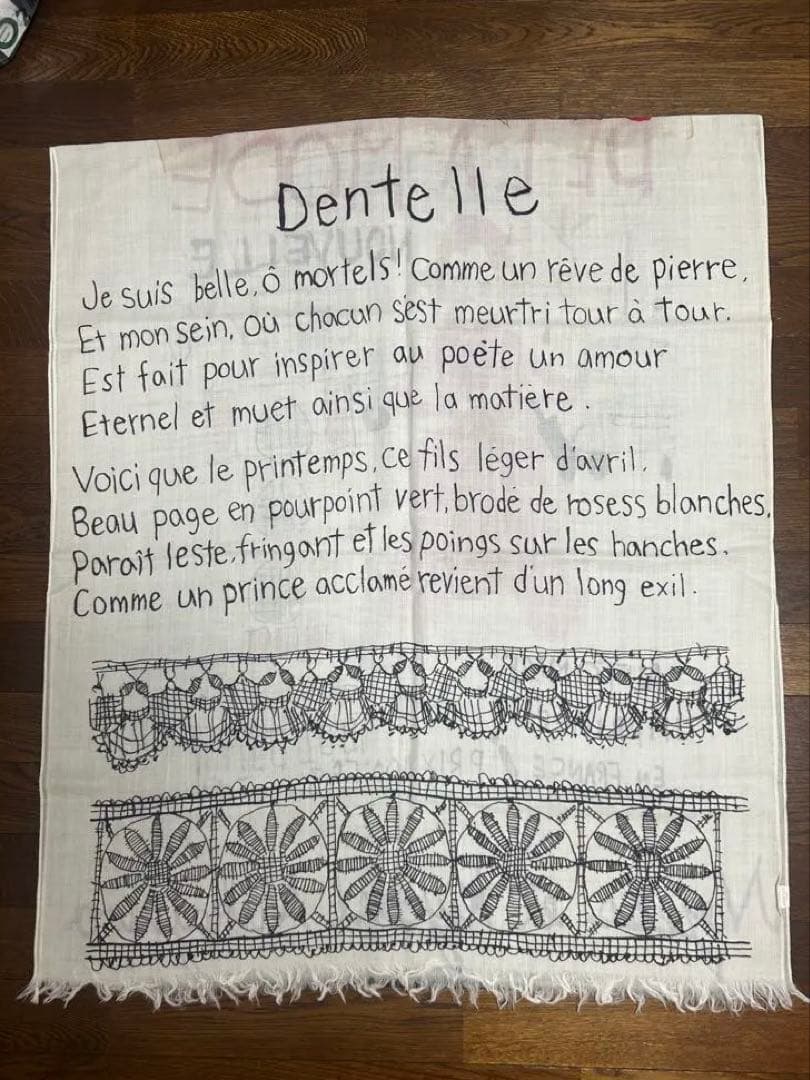 Dentelle
Je suis belle, ô mortels! Comme un rêve de pierre,
Et mon sein, où chacun s'est meurtri tour à tour.
Est fait pour inspirer au poète un amour
Eternel et muet ainsi que la matière.
Voici que le printemps, ce fils léger d'avril,
Beau page en pourpoint vert, brodé de rosess blanches,
Paraît leste, fringant et les poings sur les hanches.
Comme un prince acclamé revient d'un long exil.